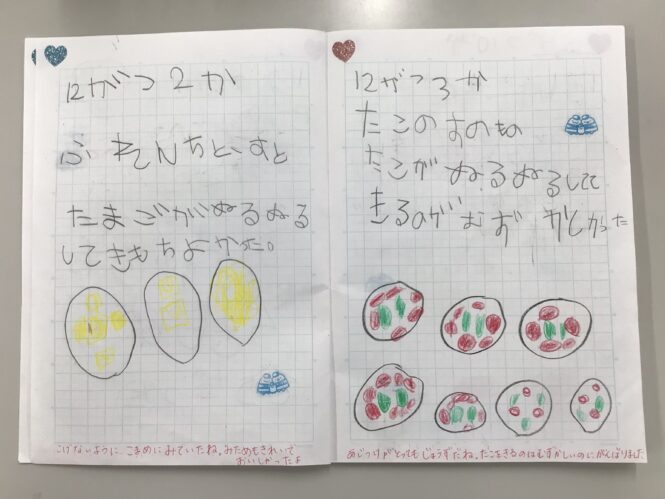 12がつ2か
ふれんちとーすと
たまごがぬるぬる
してきもちよかった。
こげないように こまめにみていたね。みためもきれいで
おいしかったよ
12がつ3か
たこのすのもの
たこがぬるぬるしてて
きるのがむずかしかった
あじつけがとってもじょうずだね。たこをきるのはむずかしいのにがんばりました